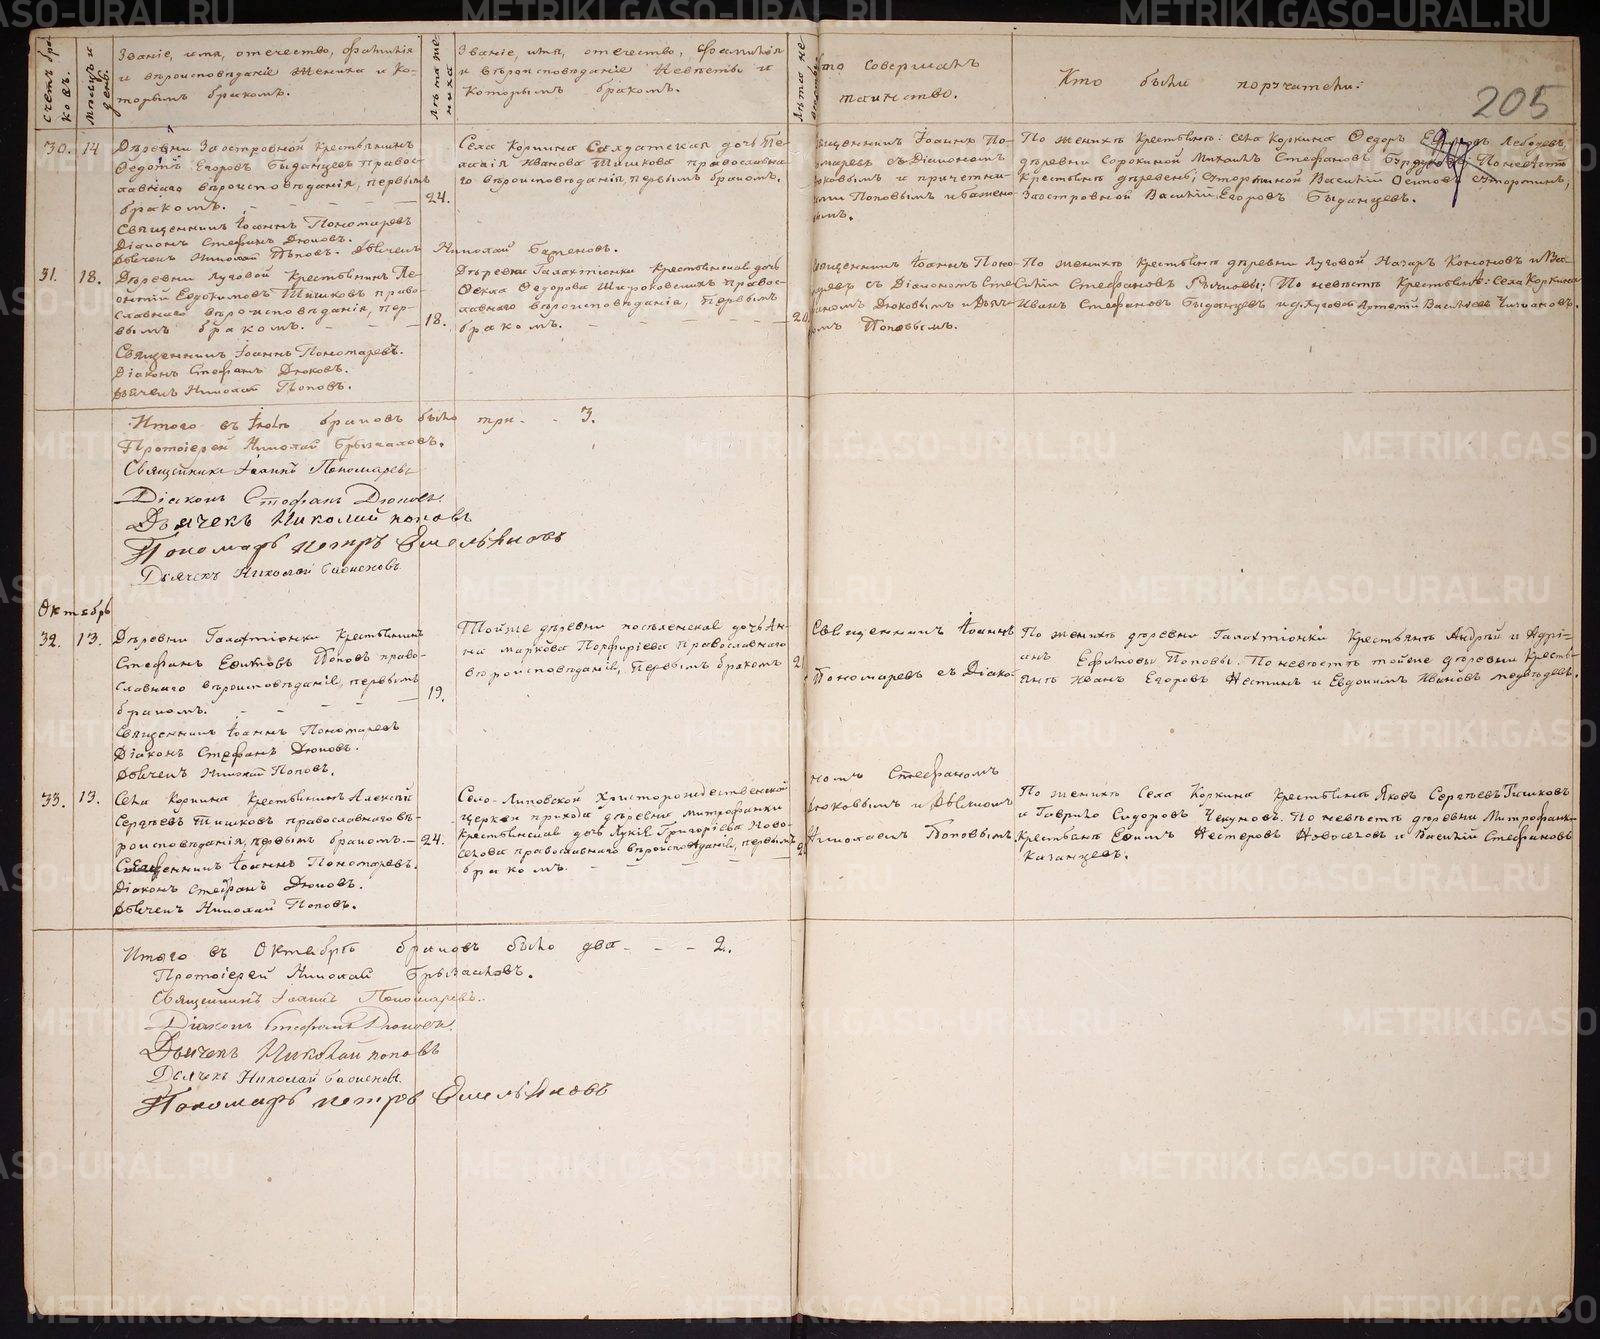 205
счетъ бра-
ковъ.
мѣсяцъ и
день.
Званіе, имя, отечество, фамилія
и вѣроисповѣданіе жениха и ко-
торымъ бракомъ.
лѣта же-
ниха
Званіе, имя, отечество, фамилія
и вѣроисповѣданіе невѣсты и
которымъ бракомъ.
лѣта не-
совершалъ
таинство.
Кто были поручатели:
30. 14
Деревни Заостровной крестьянинъ
Федотъ Егоровъ Быданцевъ правос-
лавнаго вѣроисповѣданія, первымъ
бракомъ.
24.
Священникъ Іоаннъ Пономаревъ
Діаконъ Стефанъ Дюковъ.
Дьячекъ Николай Поповъ. Дьячекъ Николай Баженовъ.
Села Коркина Салдатская дочь Пе-
лагія Иванова Тишкова православна-
го вѣроисповѣданія, первымъ бракомъ.
Іоаннъ По-
съ Діакономъ
и причетни-
Поповымъ и Бажено-
По женихѣ крестьяне: села Коркина Федоръ Лебедевъ,
деревни Сорокиной Михаилъ Стефановъ По невѣстѣ
крестьяне деревень; Василій Осиповъ
Заостровной Василій Егоровъ Быданцевъ.
31. 18.
Деревни Луговой крестьянинъ Ле-
онтій Евдокимовъ Тишковъ право-
славнаго вѣроисповѣданія, пер-
вымъ бракомъ.
18.
Священникъ Іоаннъ Пономаревъ.
Діаконъ Стефанъ Дюковъ.
Дьячекъ Николай Поповъ.
Деревни Галахтіонки крестьянская дочь
Фекла Федорова Широковскихъ правос-
лавнаго вѣроисповѣданія, первымъ
бракомъ.
20
Іоаннъ Поно-
съ Діакономъ Сте-
Дюковымъ и Дьяч-
Поповымъ.
По женихѣ крестьяне деревни Луговой Назаръ Кононовъ и Ва-
силій Стефановъ По невѣстѣ крестьяне: села Коркина
Иванъ Стефановъ Быданцевъ и д. Луговой Артемій Васильевъ
Итого въ Іюлѣ браковъ было три. - - 3.
Протоіерей Николай
Священникъ Іоаннъ Пономаревъ
Діаконъ Стефанъ Дюковъ
Дьячекъ Николай Поповъ
Пономарь Петръ Емельяновъ
Дьячекъ Николай Баженовъ
Октябрь
32. 13.
Деревни Галахтіонки крестьянинъ
Стефанъ Ефимовъ Поповъ право-
славнаго вѣроисповѣданія, первымъ
бракомъ.
19.
Священникъ Іоаннъ Пономаревъ
Діаконъ Стефанъ Дюковъ.
Дьячекъ Николай Поповъ.
Той же деревни поселенская дочь Ан-
на Маркова Порфирьева православнаго
вѣроисповѣданія, первымъ бракомъ
Священникъ Іоаннъ
Пономаревъ съ Діако-
По женихѣ деревни Галахтіонки крестьяне Андрей и Адрі-
анъ Ефимовы Поповы. По невѣстѣ той же деревни кресть-
яне Иванъ Егоровъ и Евдокимъ Ивановъ Медвѣдевъ.
33. 13.
Села Коркина крестьянинъ Алексѣй
Сергѣевъ Тишковъ православнаго вѣ-
роисповѣданія, первымъ бракомъ.
24.
Священникъ Іоаннъ Пономаревъ.
Діаконъ Стефанъ Дюковъ.
Дьячекъ Николай Поповъ.
Село-Липовской Христорождественской
церкви прихода деревни Митрофанки
крестьянская дочь Лукія Григорьева Ново-
селова православнаго вѣроисповѣданія, первымъ
бракомъ.
номъ Стефаномъ
Дюковымъ и Дьячкомъ
Николаемъ Поповымъ
По женихѣ села Коркина крестьяне Яковъ Сергѣевъ Тишковъ
и Гаврило Сидоровъ Чекуновъ. По невѣстѣ деревни Митрофанки
крестьяне Ефимъ Нестеровъ Новоселовъ и Василій Стефановъ
Казанцевъ.
Итого въ Октябрѣ браковъ было два - - - 2.
Протоіерей Николай
Священникъ Іоаннъ Пономаревъ.
Діаконъ Стефанъ Дюковъ.
Дьячекъ Николай Поповъ
Дьячекъ Николай Баженовъ.
Пономарь Петръ Емельяновъ
METRIKI.GASO-URAL.RU